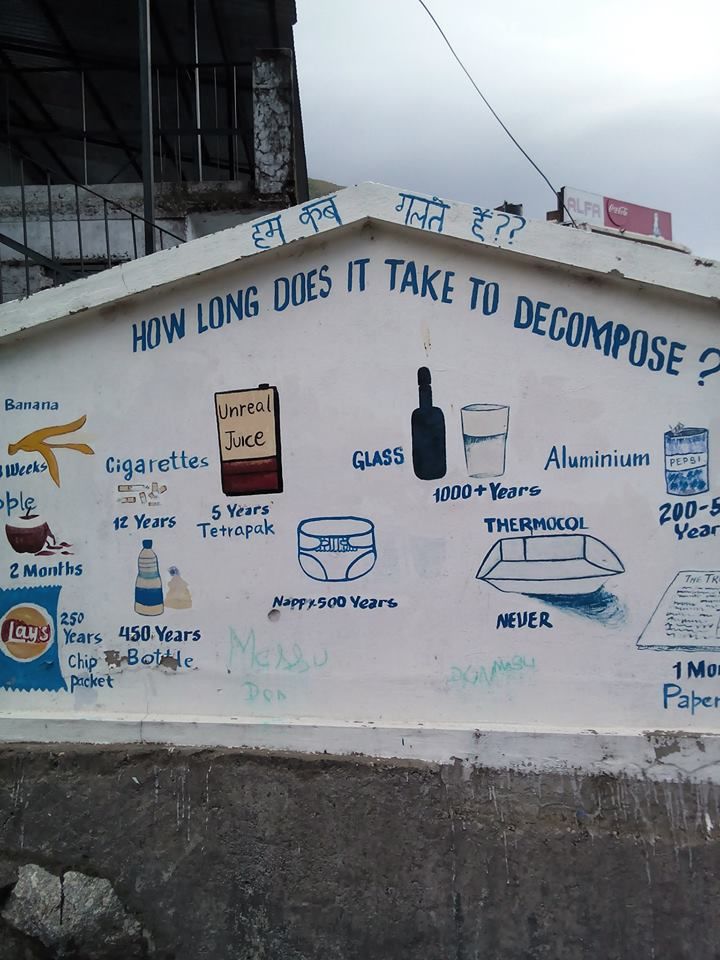 हम कब गलते हैं??
ALFA Coca-Cola
HOW LONG DOES IT TAKE TO DECOMPOSE?
Banana
3 Weeks
pple
2 Months
Lays
250
Years
Chip
Packet
Cigarettes
12 Years
450 Years
Bottle
Unreal
Juice
5 Years
Tetrapak
Nappy 500 Years
GLASS
1000+ Years
THERMOCOL
NEVER
Aluminium
PEPSI
200-5
Year
THE TR
1 Mo
Paper
Massu
Don
DON MASU